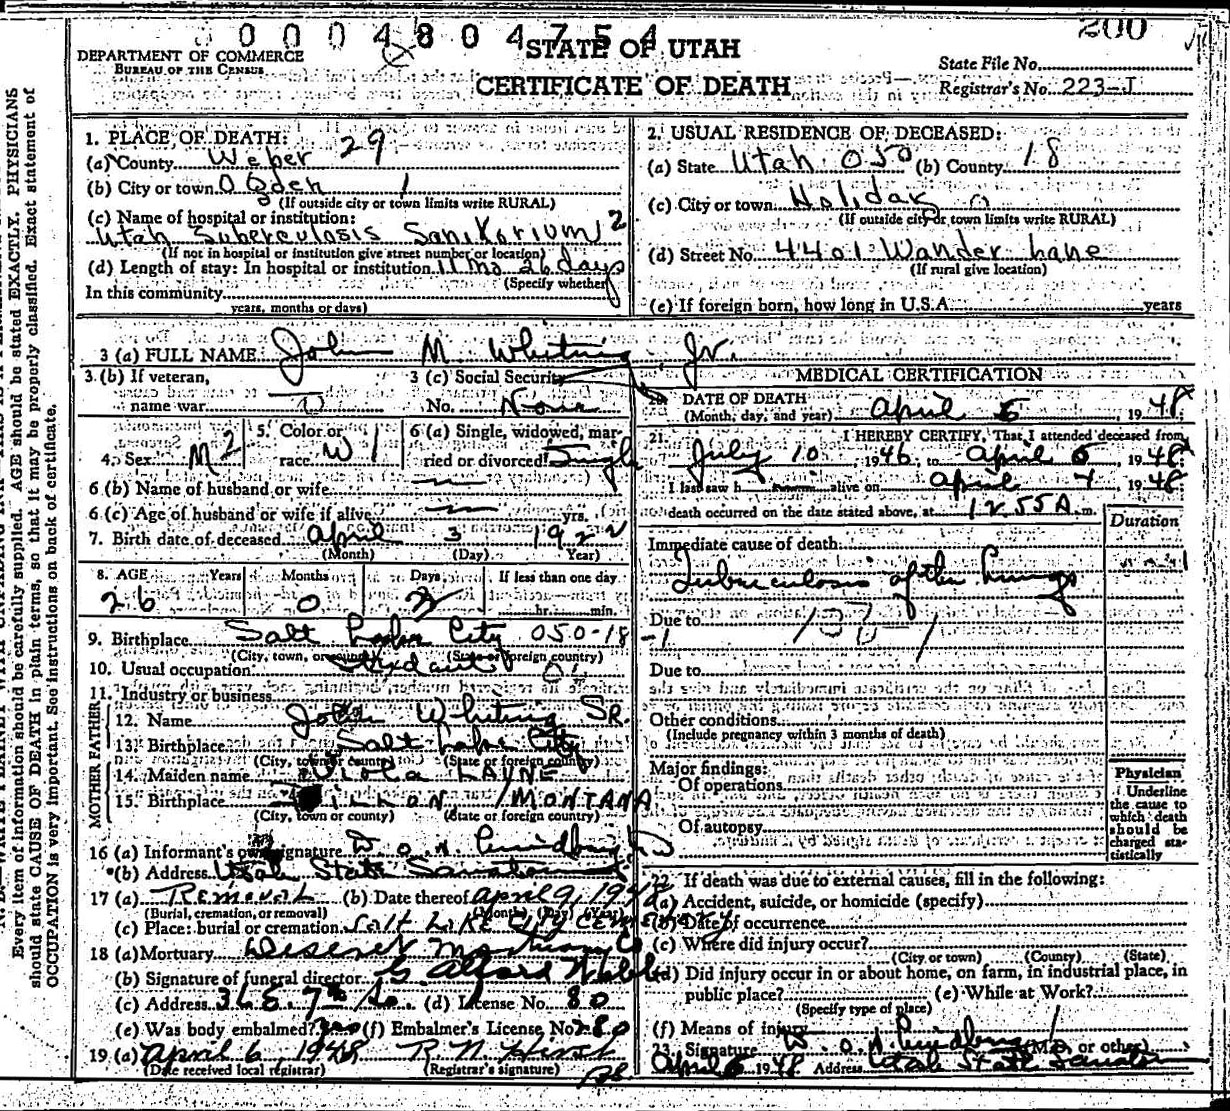 0004804754
200
DEPARTMENT OF COMMERCE
BUREAU OF THE CENSUS
STATE OF UTAH
CERTIFICATE OF DEATH
State File No.
Registrar's No. 223-J
1. PLACE OF DEATH: 29
(a) County Weber
(b) City or town Ogden 1
(If outside city or town limits write RURAL)
(c) Name of hospital or institution:
Utah Tuberculosis Sanitorium 2
(If not in hospital or institution give street number or location)
(d) Length of stay: In hospital or institution 11 mo 26 days
(Specify whether
In this community
years, months or days)
2. USUAL RESIDENCE OF DECEASED:
(a) State Utah 050 (b) County 18
(c) City or town Holiday 0
(If outside city or town limits write RURAL)
(d) Street No. 4401 Wander Lane
(If rural give location)
(e) If foreign born, how long in U.S.A. years
3 (a) FULL NAME: John M. Whitney Jr.
3 (b) If veteran,
name war
3 (c) Social Security
No. None
4. Sex M 2
5. Color or
race W 1
6 (a) Single, widowed, mar-
ried or divorced Single
6 (b) Name of husband or wife
6 (c) Age of husband or wife if alive yrs.
7. Birth date of deceased April 3 1922
(Month) (Day) (Year)
8. AGE Years Months Days If less than one day
26 0 hr. min.
9. Birthplace Salt Lake City 050-18-1
(City, town, or county) (State or foreign country)
10. Usual occupation Student
11. Industry or business
FATHER
12. Name John Whitney SR.
13. Birthplace Salt Lake City
(City, town or county) (State or foreign country)
MOTHER
14. Maiden name Viola LAYNE
15. Birthplace DILLON, MONTANA
(City, town or county) (State or foreign country)
16 (a) Informant's own signature
(b) Address Utah State
17 (a) Removal (b) Date thereof April 9, 1948
(Burial, cremation, or removal) (Month) (Day) (Year)
(c) Place: burial or cremation Salt Lake City Cemetery
18 (a) Mortuary Deseret Mortuary Co
(b) Signature of funeral director
(c) Address 36 E. 7th So. (d) License No. 80
(e) Was body embalmed? (f) Embalmer's License No. 280
19 (a) April 6, 1948
(Date received local registrar) (Registrar's signature)
MEDICAL CERTIFICATION
20. DATE OF DEATH
(Month, day, and year) April 1948
21. I HEREBY CERTIFY, That I attended deceased from
July 10, 1946, to April 1948
I last saw h alive on April 4 1948
death occurred on the date stated above, at 1255 A. m.
Duration
Immediate cause of death:
Tuberculosis of the Lungs
Due to
Due to
Other conditions
(Include pregnancy within 3 months of death)
Major findings:
Of operations
Of autopsy
Physician
Underline
the cause to
which death
should be
charged sta-
tistically
22. If death was due to external causes, fill in the following:
(a) Accident, suicide, or homicide (specify)
(b) Date of occurrence
(c) Where did injury occur?
(City or town) (County) (State)
(d) Did injury occur in or about home, on farm, in industrial place, in
public place? (e) While at Work?
(Specify type of place)
(f) Means of injury
23. Signature (M.D. or other)
April 1948 Address Utah State
Every item of information should be carefully supplied. AGE should be stated EXACTLY. PHYSICIANS
should state CAUSE OF DEATH in plain terms, so that it may be properly classified. Exact statement of
OCCUPATION is very important. See instructions on back of certificate.